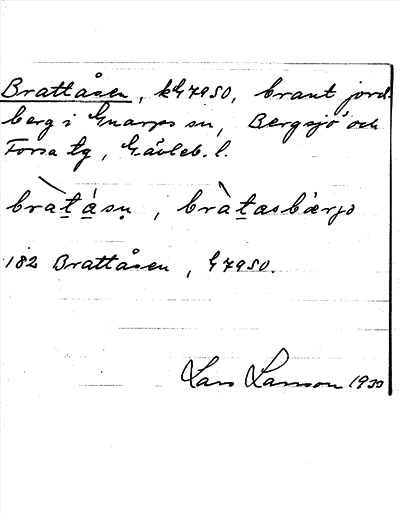 Brattåsen, kG7950, brant jord-
berg i Gnarps sn, Bergsjö och
Forsa tg, Gävleb. l.
bratåsn, bràtasbærjo
182 Brattåsen, G7950.
Lars Larsson 1930